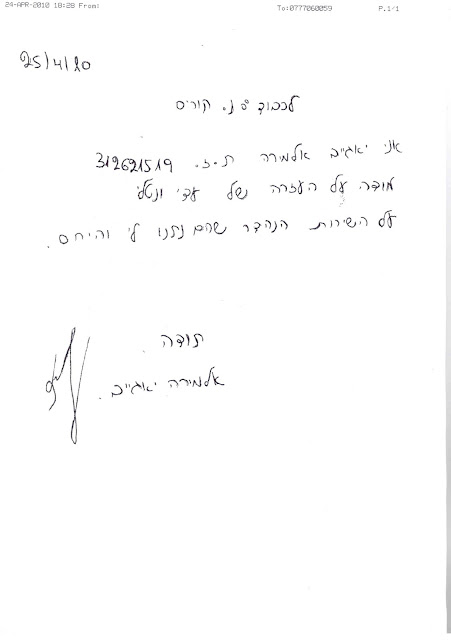 24-APR-2010 18:28 From: To:0777060059 P.1/1
25/4/20
לכבוד : נ. קוריס
אני יאגייב אלמירה ת.ז. 312621519
מודה על העזרה של עדי ונטלי
על השירות הנהדר שהם נתנו לי והיחס.
תודה.
אלמירה יאגייב.